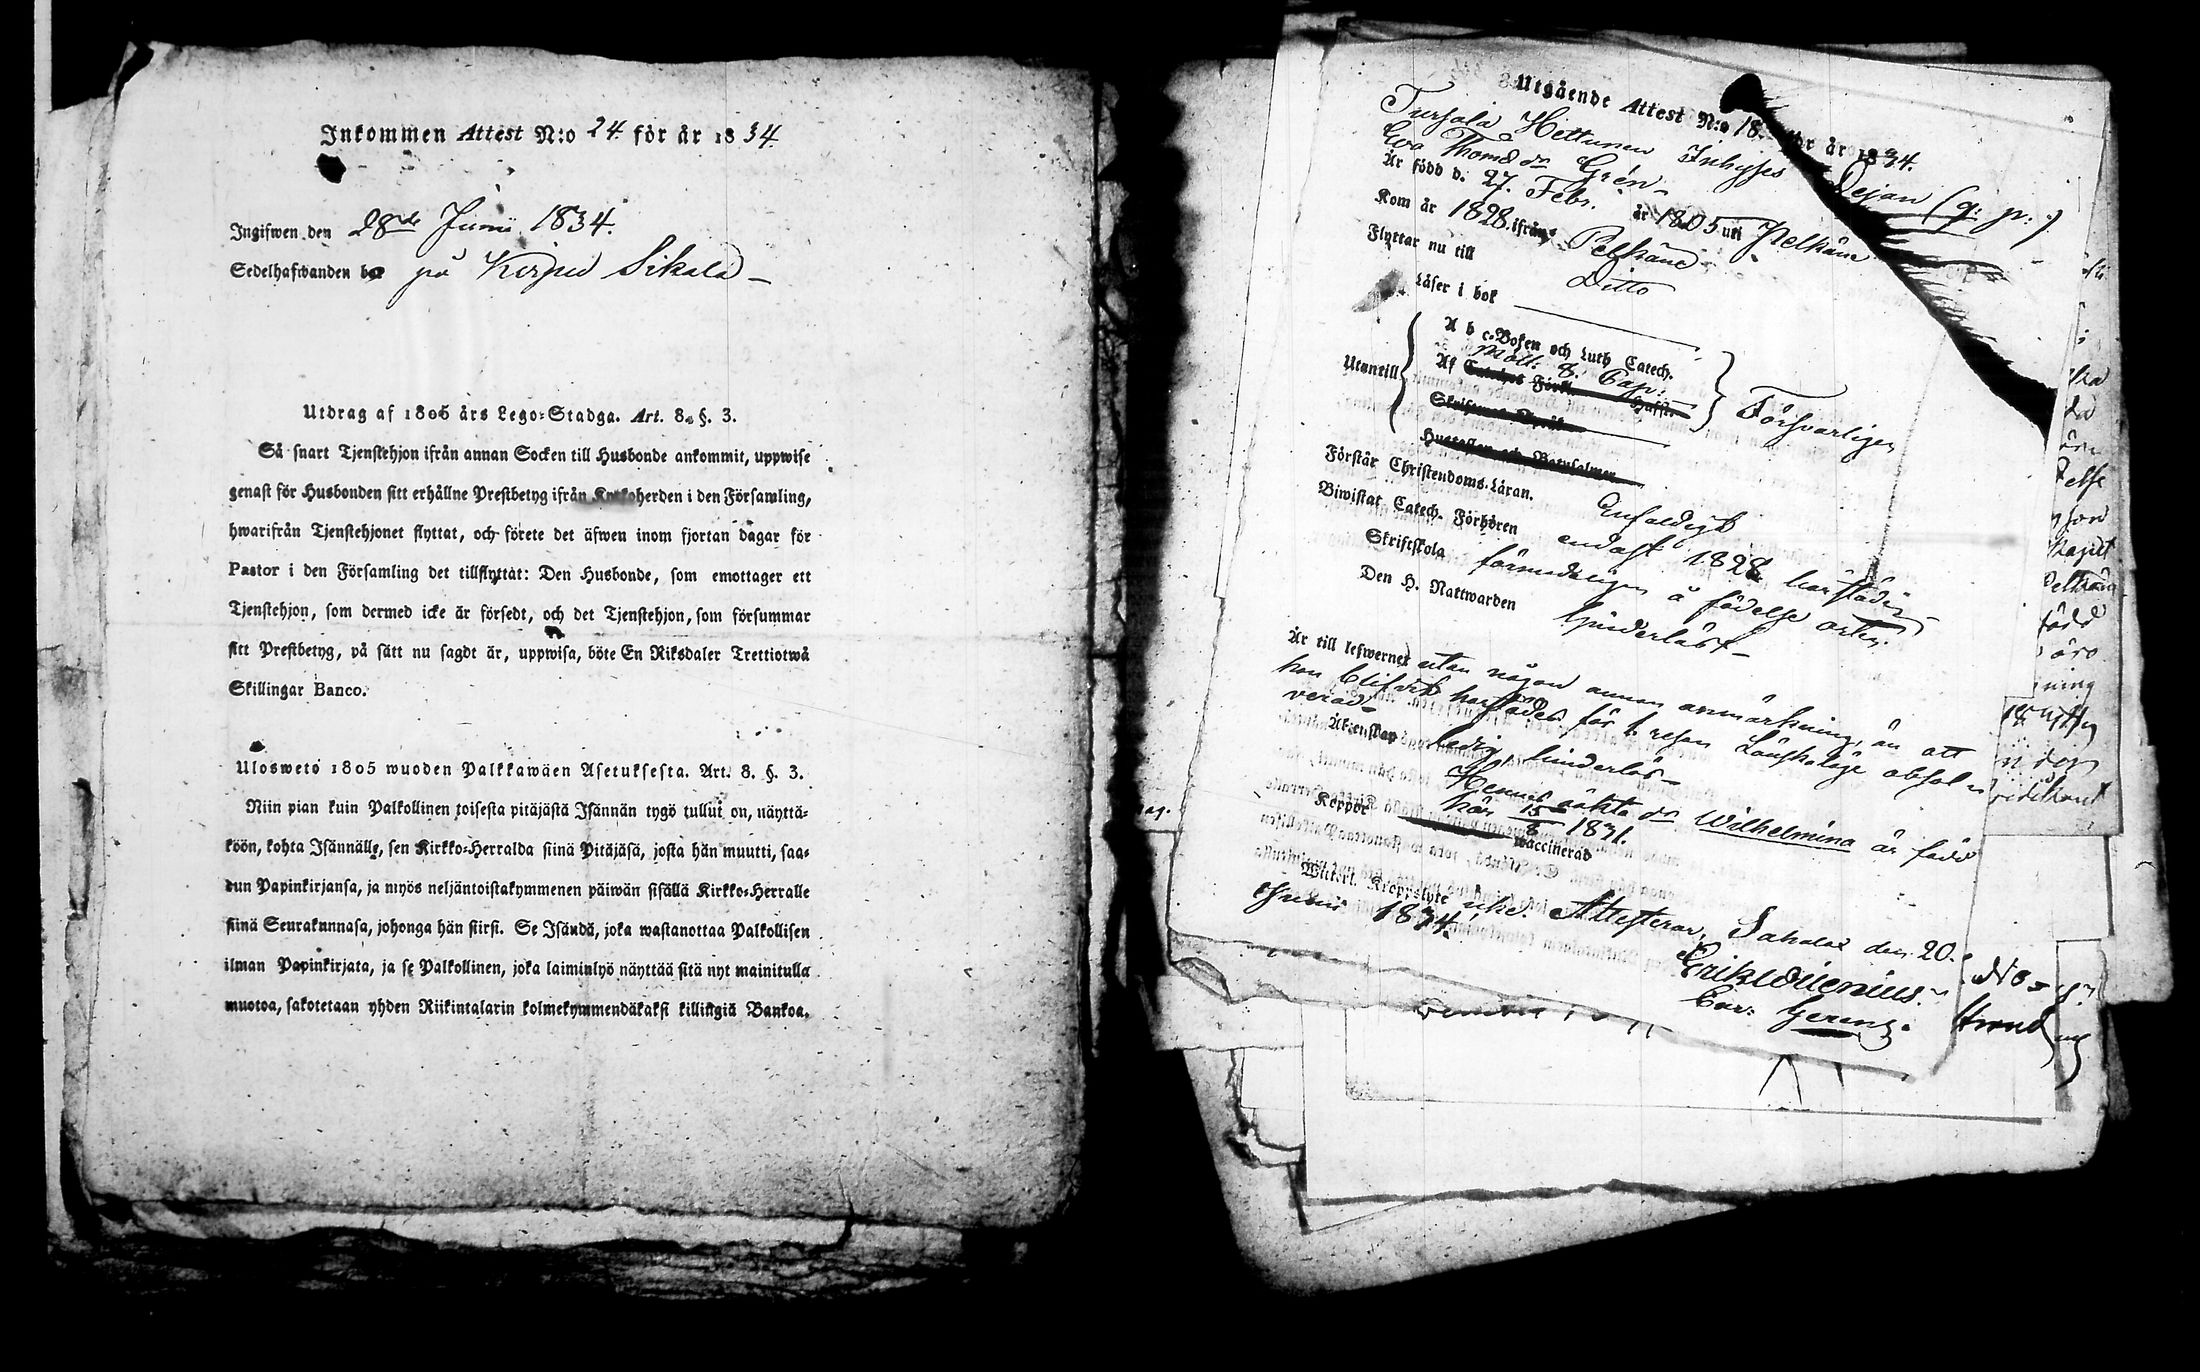 Inkommen Attest N:o 24. för år 1834.
Ingifwen den 28de Junii 1834.
Sedelhafwanden bor på Kirpu Sikala –
Utdrag af 1805 års Lego-Stadga. Art. 8. §. 3.
Så snart Tjenstehjon ifrån annan Socken till Husbonde ankommit, uppwise
genast för Husbonden sitt erhållne Prestbetyg ifrån Kyrkoherden i den Församling,
hwarifrån Tjenstehjonet flyttat, och förete det äfwen inom fjortan dagar för
Pastor i den Församling det tillflyttat: Den Husbonde, som emottager ett
Tjenstehjon, som dermed icke är försedt, och det Tjenstehjon, som försummar
sitt Prestbetyg, på sätt nu sagdt är, uppwisa, böte En Riksdaler Trettiotwå
Skillingar Banco.
Ulosweto 1805 wuoden Palkkawäen Asetuksesta. Art. 8. §. 3.
Niin pian kuin Palkollinen toisesta pitäjästä Isännän tygö tullut on, näyttä-
köön, kohta Isännälle, sen Kirkko-Herralda siinä Pitäjäsä, josta hän muutti, saa-
dun Papinkirjansa, ja myös neljäntoistakymmenen päiwän sisällä Kirkko-Herralle
siinä Seurakunnasa, johonga hän siirsi. Se Isändä, joka wastanottaa Palkollisen
ilman Papinkirjata, ja se Palkollinen, joka laiminlyö näyttää sitä nyt mainitulla
muotoa, sakotetaan yhden Riikintalarin kolmekymmendäkaksi killingiä Bankoa.
Utgående Attest N:o 18. för år 1834.
Tursola Hettunen Inhyses Pejan (q: pr:)
Eva Thomæ dr Grén –
Är född d. 27. Febr. år 1805 uti Pelkäne
Kom år 1828. ifrån Pelkäne
Flyttar nu till Ditto
Läser i bok
A b c-Boken och Luth Catech.
Math. 8. Cap:
Utantill Af Försvarligen
Förstår Christendoms-Läran. Enfaldigt
Biwistat Catech. Förhören endast 1828 härstädes
Skriftskola förmodeligen å födelse orten.
Den H. Nattwarden hinderlöst –
Är till lefwernet utan någon annan anmärkning, än att
hon blifvit härstädes för 1. resan Lönskaläge absol-
verad –
Äktenskap ledig, hinderlös –
Hennes oäkta dr Wilhelmina är född
här 15/8 1831.
Koppor waccinerad
Widerl. Kroppslyte icke. Attesterar, Sahalax den 20.
Junii 1834.
Erik Widenius.